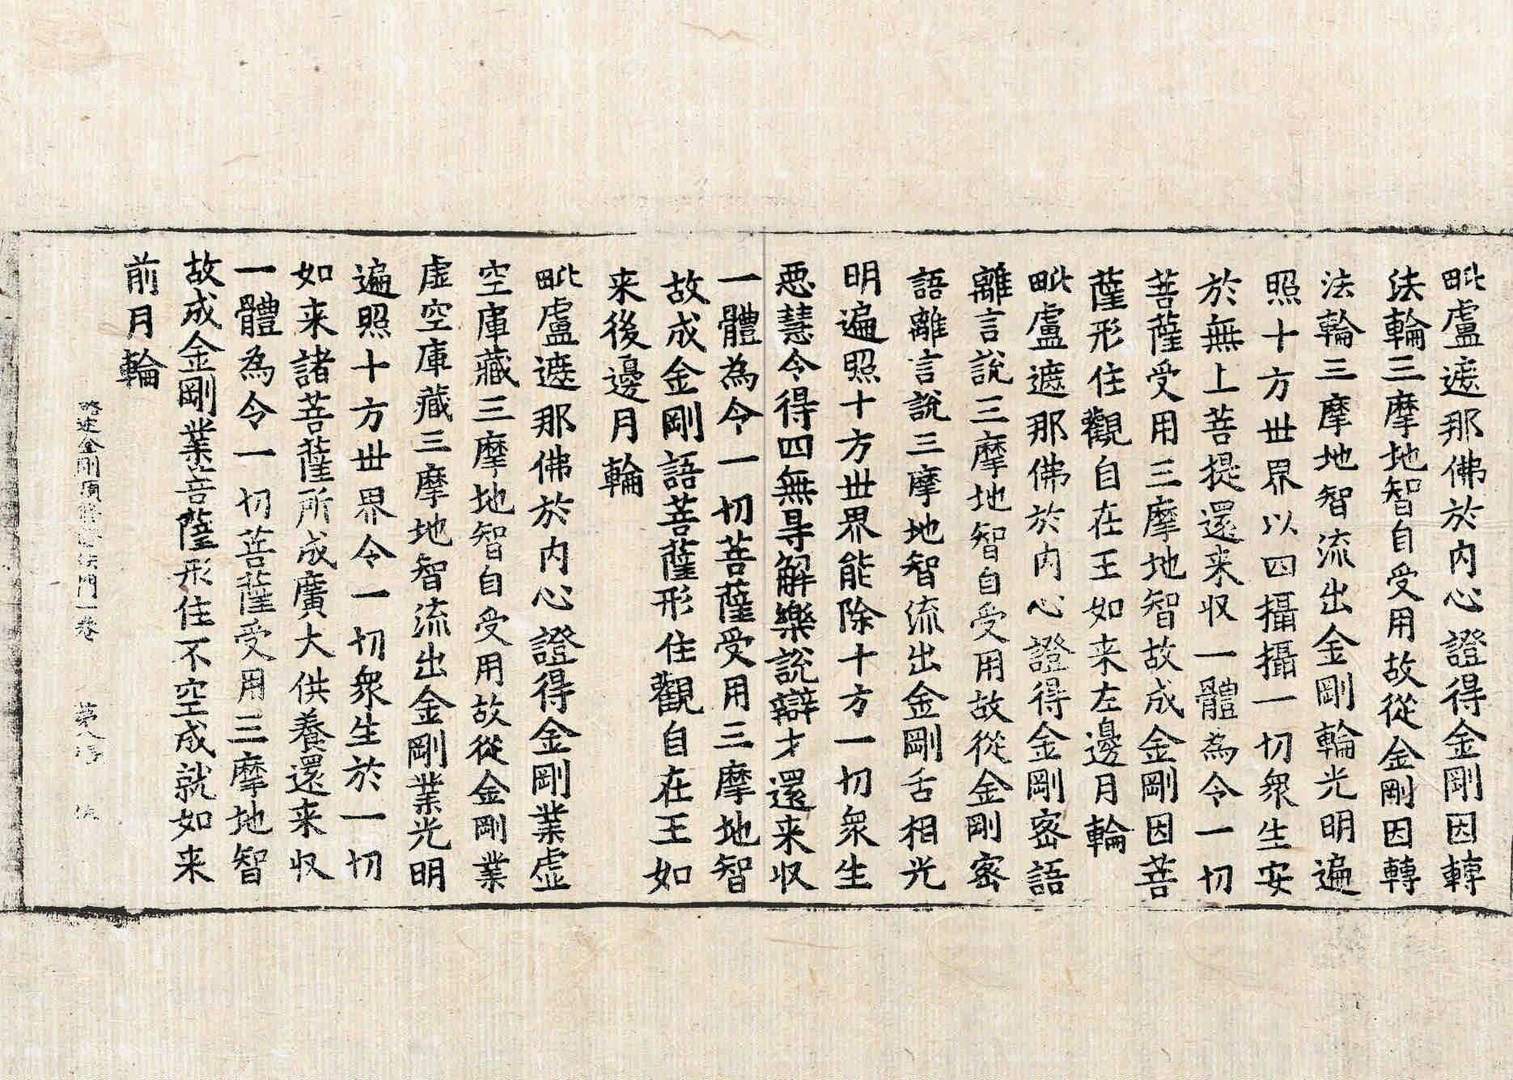 毗盧遮那佛於内心證得金剛因轉
法輪三摩地智自受用故從金剛因轉
法輪三摩地智流出金剛輪光明遍
照十方世界以四攝攝一切衆生安
於無上菩提還来収一體為令一切
菩薩受用三摩地智故成金剛因菩
薩形住觀自在王如来左邊月輪
毗盧遮那佛於内心證得金剛密語
離言說三摩地智自受用故從金剛密
語離言說三摩地智流出金剛舌相光
明遍照十方世界能除十方一切衆生
惡慧令得四無㝵解樂說辯才還来収
一體為令一切菩薩受用三摩地智
故成金剛語菩薩形住觀自在王如
来後邊月輪
毗盧遮那佛於内心證得金剛業虛
空庫藏三摩地智自受用故從金剛業
虛空庫藏三摩地智流出金剛業光明
遍照十方世界令一切衆生於一切
如来諸菩薩所成廣大供養還来収
一體為令一切菩薩受用三摩地智
故成金剛業菩薩形住不空成就如来
前月輪
略述金剛頂法門一卷 第八